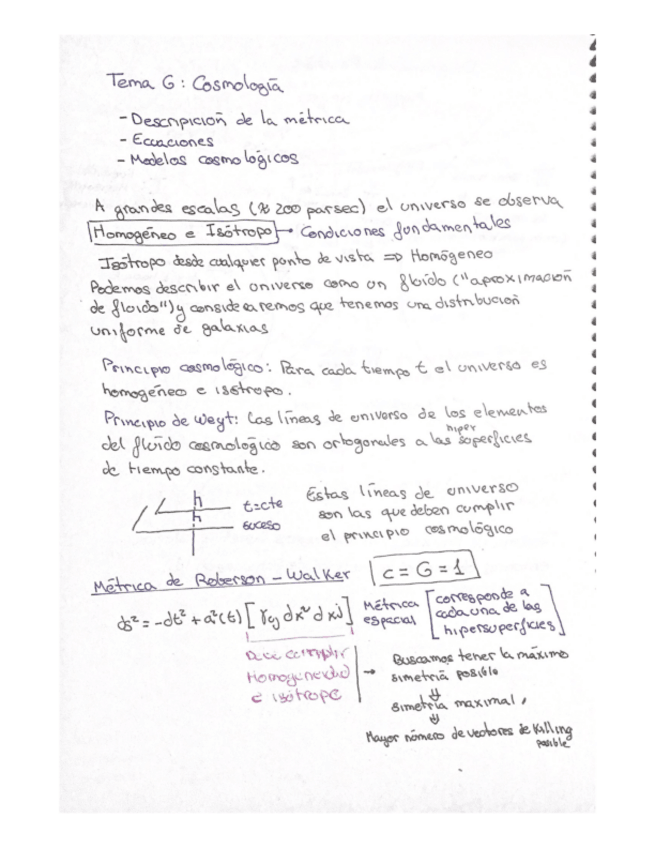 Tema 6: Cosmología
- Descripición de la métrica
- Ecuaciones
- Modelos cosmológicos
A grandes escalas (≈ 200 parsec) el universo se observa
Homogéneo e Isótropo → Condiciones fundamentales
Isótropo desde cualquier punto de vista ⇒ Homógeneo
Podemos describir el universo como un fluído ("aproximación
de fluido") y consideraremos que tenemos una distribución
uniforme de galaxias
Principio cosmológico: Para cada tiempo t el universo es
homogéneo e isótropo.
Principio de Weyt: Las líneas de universo de los elementos
hiper
del fluído cosmológico son ortogonales a las superficies
de tiempo constante.
h
h
t=cte
suceso
Estas líneas de universo
son las que deben cumplir
el principio cosmológico
Métrica de Roberson-Walker
c = G = 1
ds² = -dt² + a²(t) [γij dxⁱ dxʲ]
Métrica
espacial
[corresponde a
cada una de las
hipersuperficies]
Debe cumplir
Homogeneidad
e isótropo
→ Buscamos tener la máxima
simetría posible
⇓
simetría maximal,
⇓
Mayor número de vectores de Killing
posible